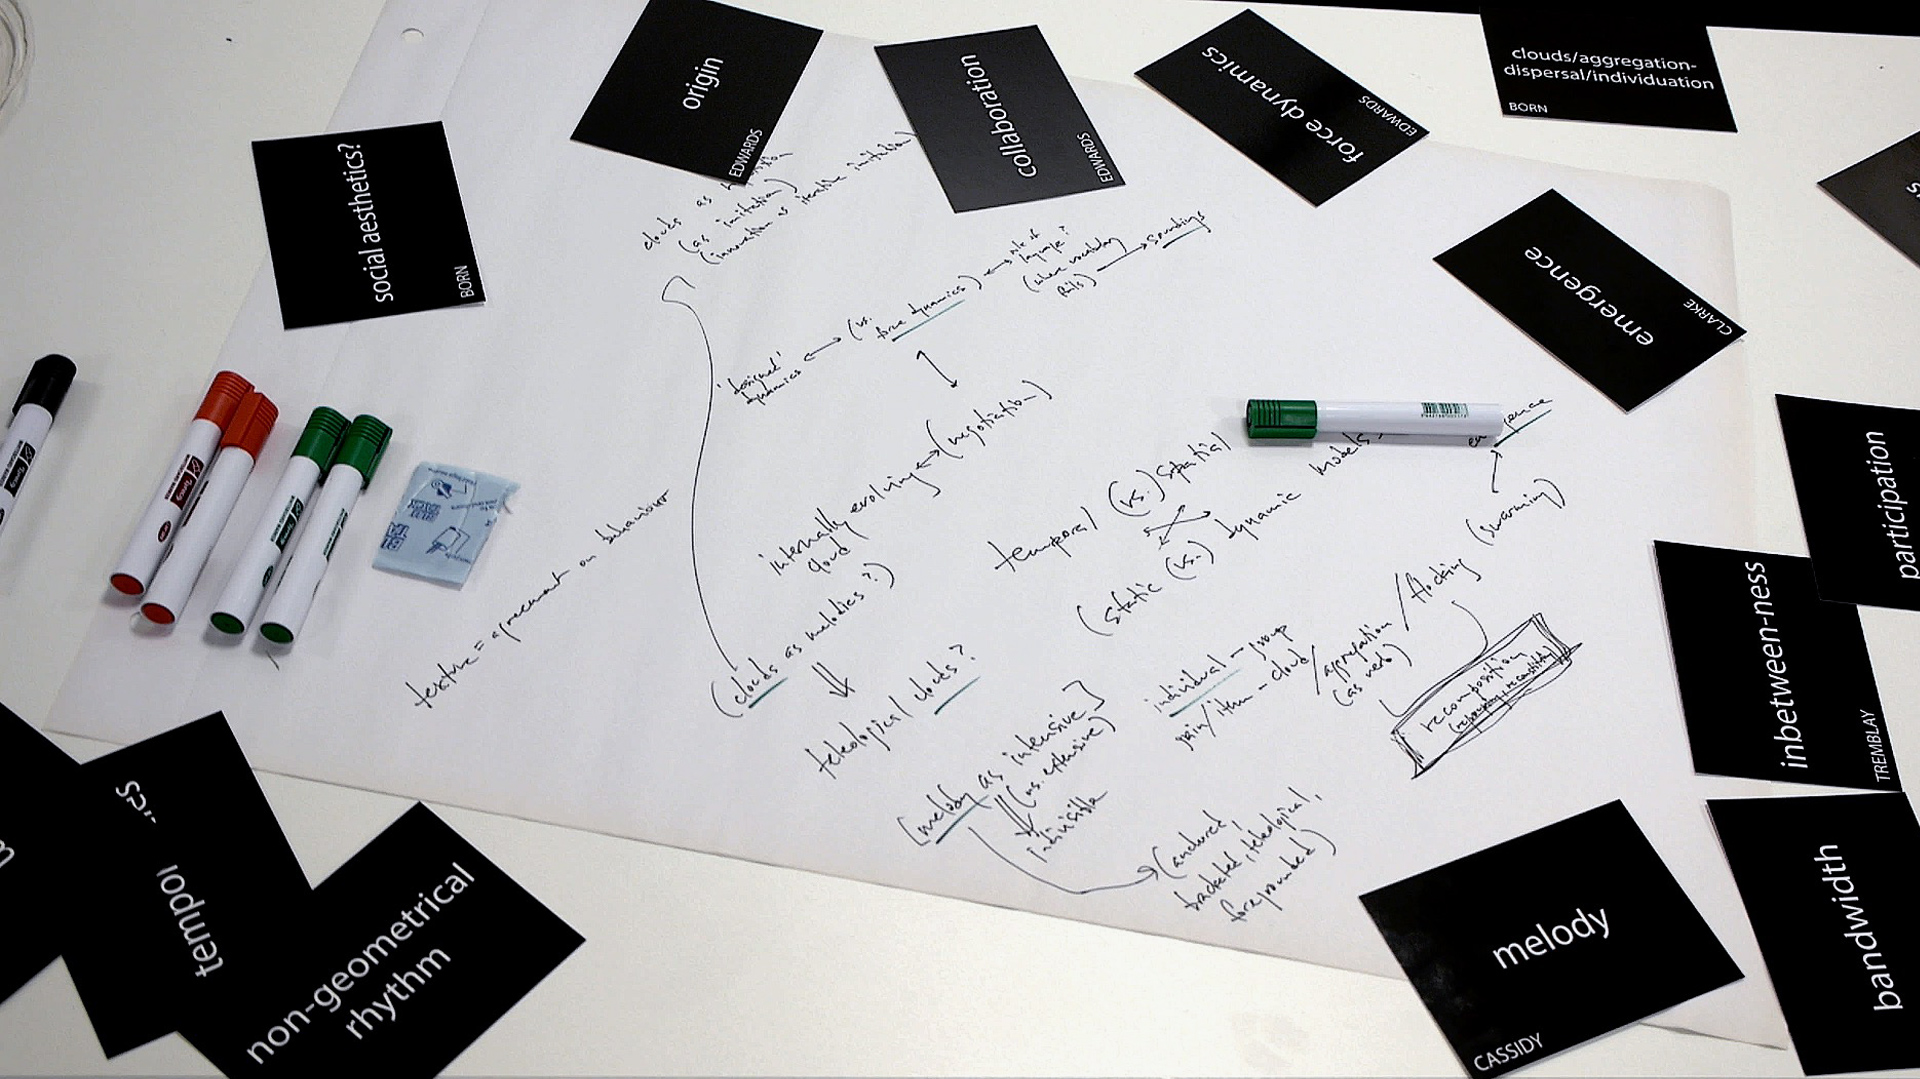 origin
EDWARDS
collaboration
EDWARDS
force dynamics
EDWARDS
clouds/aggregation-
dispersal/individuation
BORN
social aesthetics?
BORN
emergence
CLARKE
participation
inbetween-ness
TREMBLAY
bandwidth
melody
CASSIDY
non-geometrical
rhythm
clouds as
(as imitation)
(innovation as iterative imitation)
'designed'
dynamics
(vs.
force dynamics)
role of
language?
(where vocabulary
fails)
soundings
(negotiation)
internally evolving
cloud
(clouds as melodies?)
teleological clouds?
texture = agreement on behaviour
temporal (vs.) spatial
(static (vs.) dynamic models
(swarming)
individual – group
grain/item – cloud
/aggregation
(as verb)
/flocking
recomposition
[melody as intensive]
(vs. extensive)
indivisible
(anchored,
bracketed, teleological,
foregrounded)